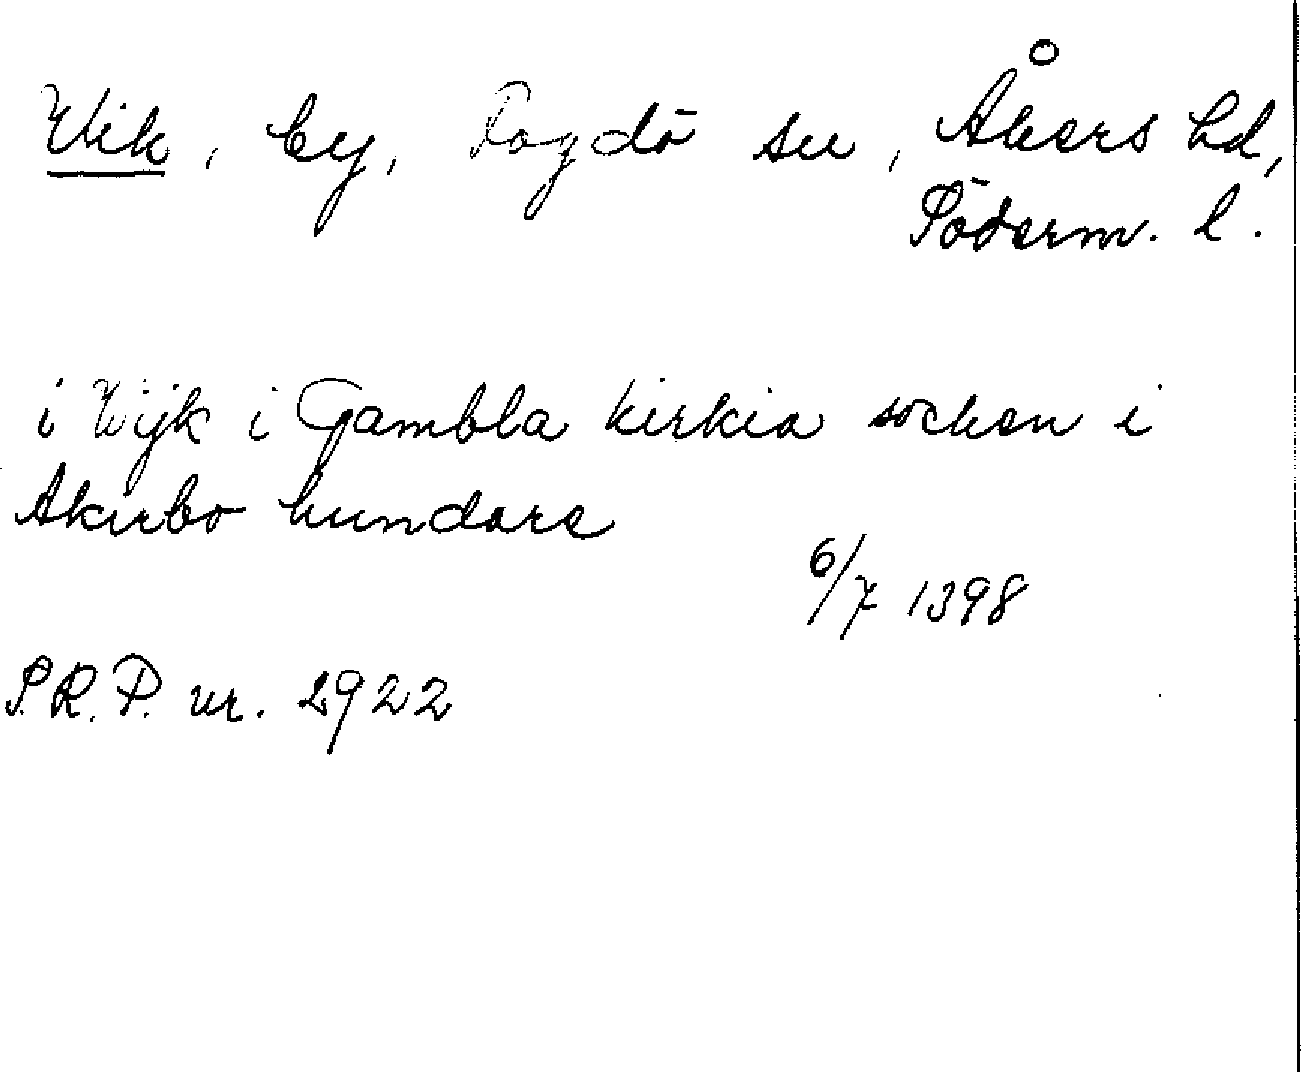 Vik, by, Fogdö sn, Åkers hd,
Söderm. l.
i Wijk i Gambla kirkia socken i
Akirbo hundare
6/7 1398
S.R.P. nr. 2922